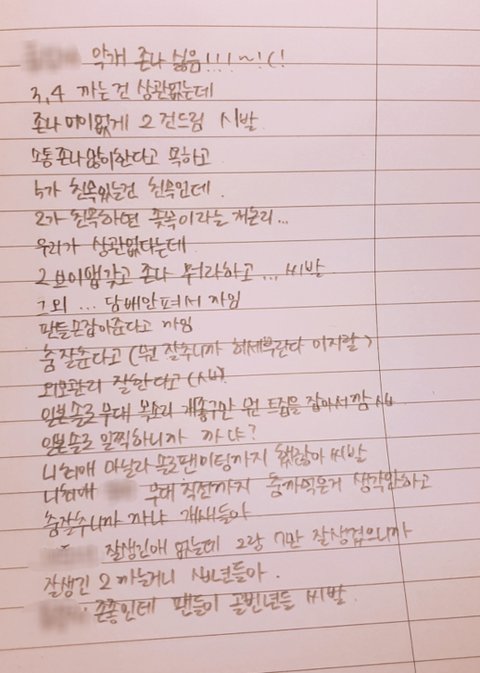 악개 존나 싫음!!!~!(!
3,4 까는건 상관없는데
존나 어이없게 2 건드림 시발
소통 존나 많이한다고 욕하고
5가 친목있는건 친목인데
2가 친목하면 좆목이라는 저논리...
우리가 상관없다는데
2 브이앱갖고 존나 뭐라하고... 씨발
그외 ... 담배안펴서 까임
팬들손잡아준다고 까임
춤잘춘다고 (뭔 잘추니까 허세부린다 이지랄)
외모관리 잘한다고 (시발)
일본솔로무대 목소리 개좋구만 뭔 트집을 잡아서깜
일본솔로 일찍하니까 까냐?
니최애 아닐라 솔로팬미팅까지 했잖아 씨발
니최애 무대 직전까지 춤까먹은거 생각안하고
춤잘추니까 까냐 개새들아
잘생긴애 없는데 2랑 7만 잘생겼으니까
잘생긴 2 까는거니 시발년들아.
존좋인데 팬들이 골빈년들 씨발